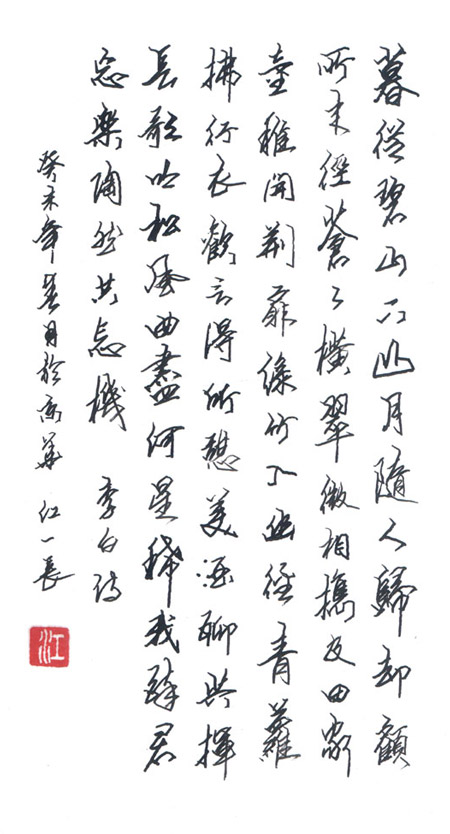 暮從碧山下山月隨人歸却顧
所来徑蒼々橫翠微相攜及田家
童稚開荊扉綠竹入幽徑青蘿
拂行衣歡言得所憩美酒聊共揮
長歌吟松風曲盡河星稀我醉君
復樂陶然共忘機 李白詩
癸未年春月於京華 江一長
江